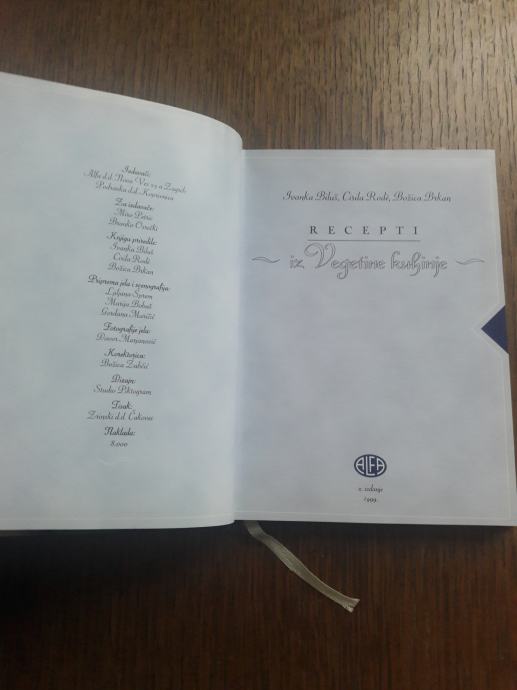 Izdavači:
Alfa d.d. Nova Ves 23 a Zagreb
Podravka d.d. Koprivnica
Za izdavače:
Miro Petric
Branko
Knjigu priredile:
Ivanka Biluš
Cirila Rodé
Božica Brkan
Priprema jela i scenografija:
Ljiljana
Marija
Gordana
Fotografije jela:
Davor Marjanović
Korektorica:
Božica
Dizajn:
Studio Piktogram
Tisak:
Zrinski d.d. Čakovec
Naklada:
8.000
Ivanka Biluš, Cirila Rodé, Božica Brkan
RECEPTI
iz Vegetine kuhinje
ALFA
2. izdanje
1999.